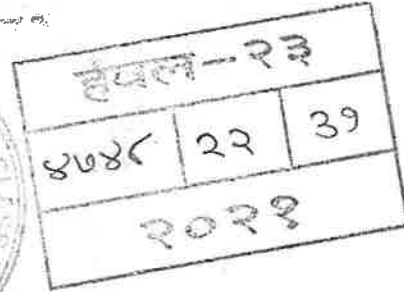 हवल-२३
४७४८ २२ ३१
२०२१